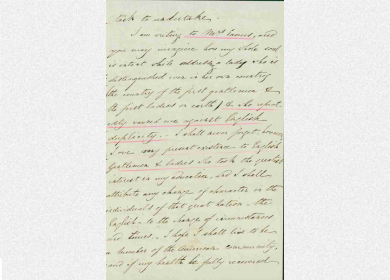 task to undertake.
I am writing to Mrs , and
you may imagine how my little soul
is intent while addressing a lady who is
distinguished even in his own country
the country of the first gentlemen &
the first ladies on earth, & who repeat-
edly warned me against English
duplicity. - I shall never forget, however
I owe my present existence to English
Gentlemen & ladies who took the greatest
interest in my education, and I shall
attribute any change of character in the
individuals of that great nation - the
English - to the change of circumstances
and times. I hope I shall live to be
a member of the community,
and if my health be fully recovered